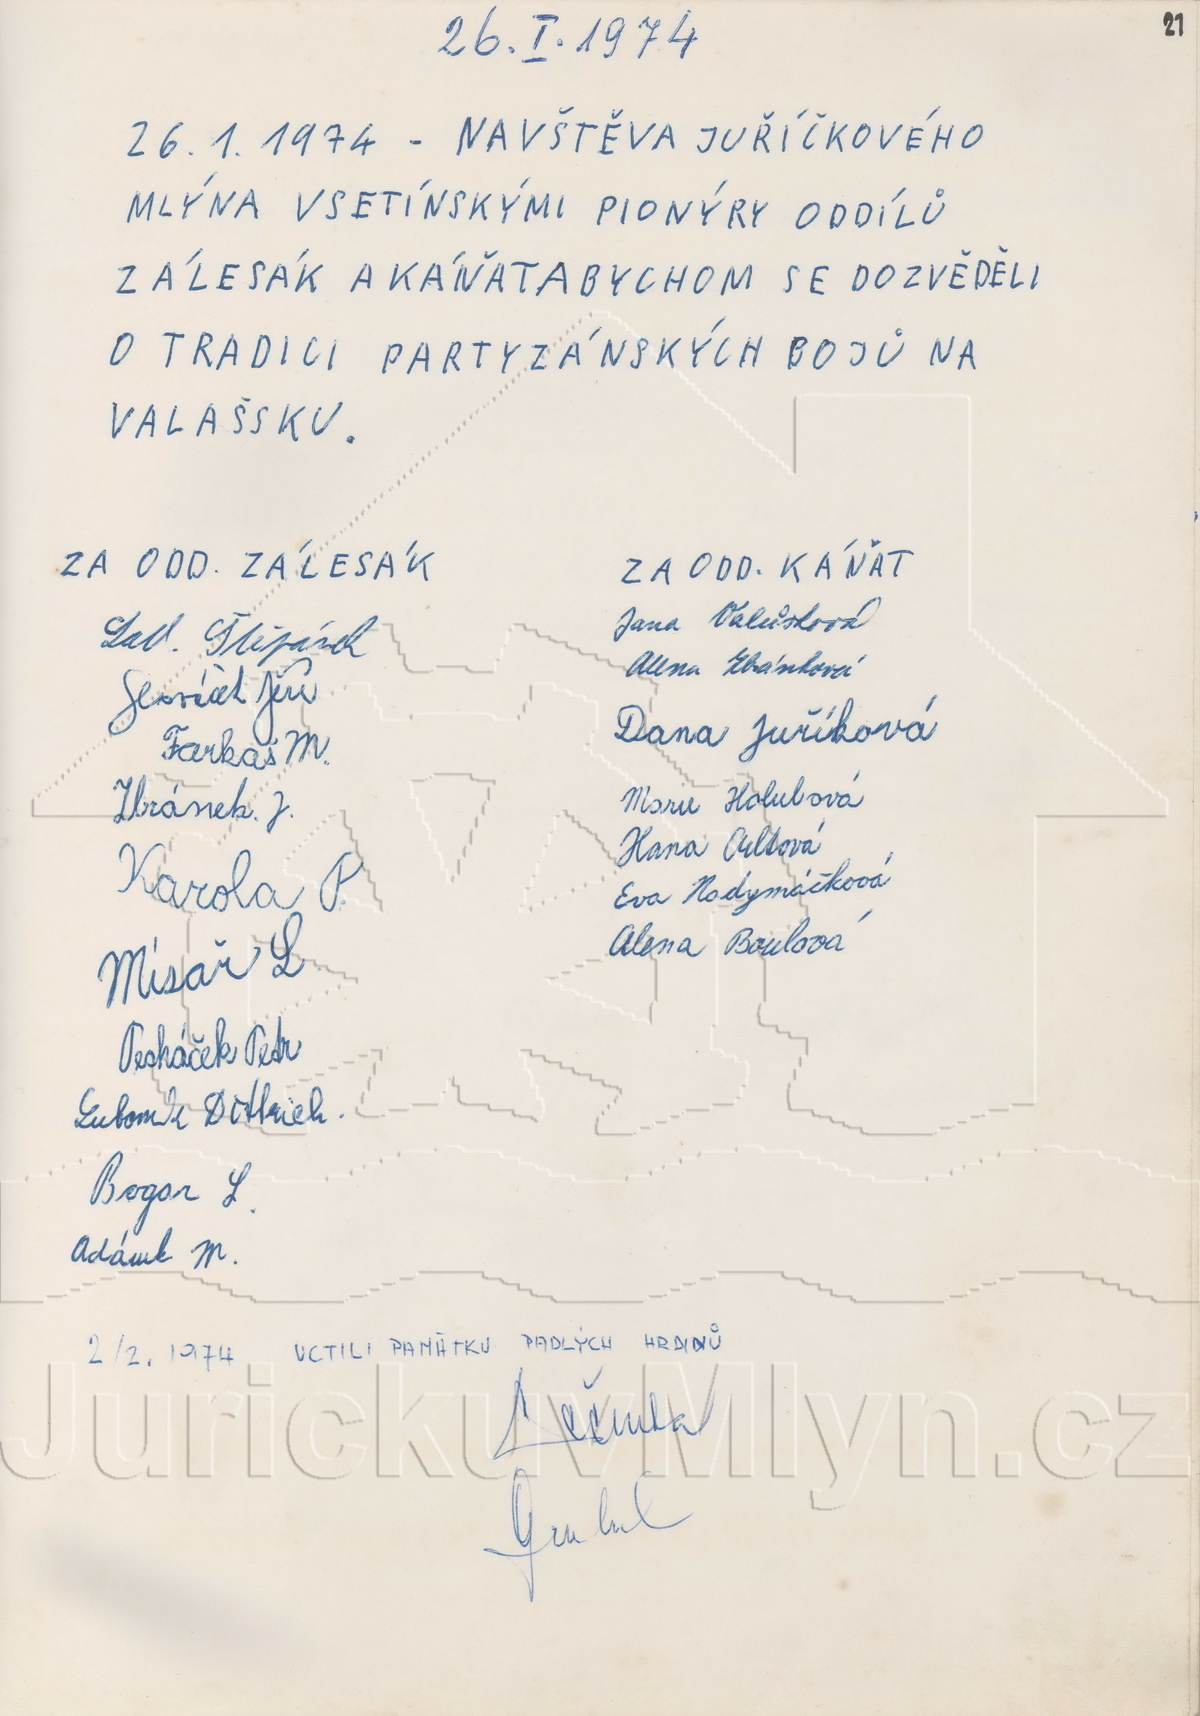 21
26. I. 1974
26. 1. 1974 - NAVŠTĚVA JUŘÍČKOVÉHO
MLÝNA VSETÍNSKÝMI PIONÝRY ODDÍLŮ
ZÁLESÁK A KÁŇAT ABYCHOM SE DOZVĚDĚLI
O TRADICI PARTYZÁNSKÝCH BOJŮ NA
VALAŠSKU.
ZA ODD. ZÁLESÁK
Lad.
Jiří
Farkaš M.
Zbránek. J.
Karola P.
Mísař L
Pecháček Petr
Lubomír Dittrich.
Bogar L.
Adámek M.
ZA ODD. KÁŇAT
Jana Valůšková
Alena Zbránková
Dana Juříková
Marie Holubová
Hana
Eva Nodymáčková
Alena
2/2. 1974 UCTILI PAMÁTKU PADLÝCH HRDINŮ
JurickuvMlyn.cz